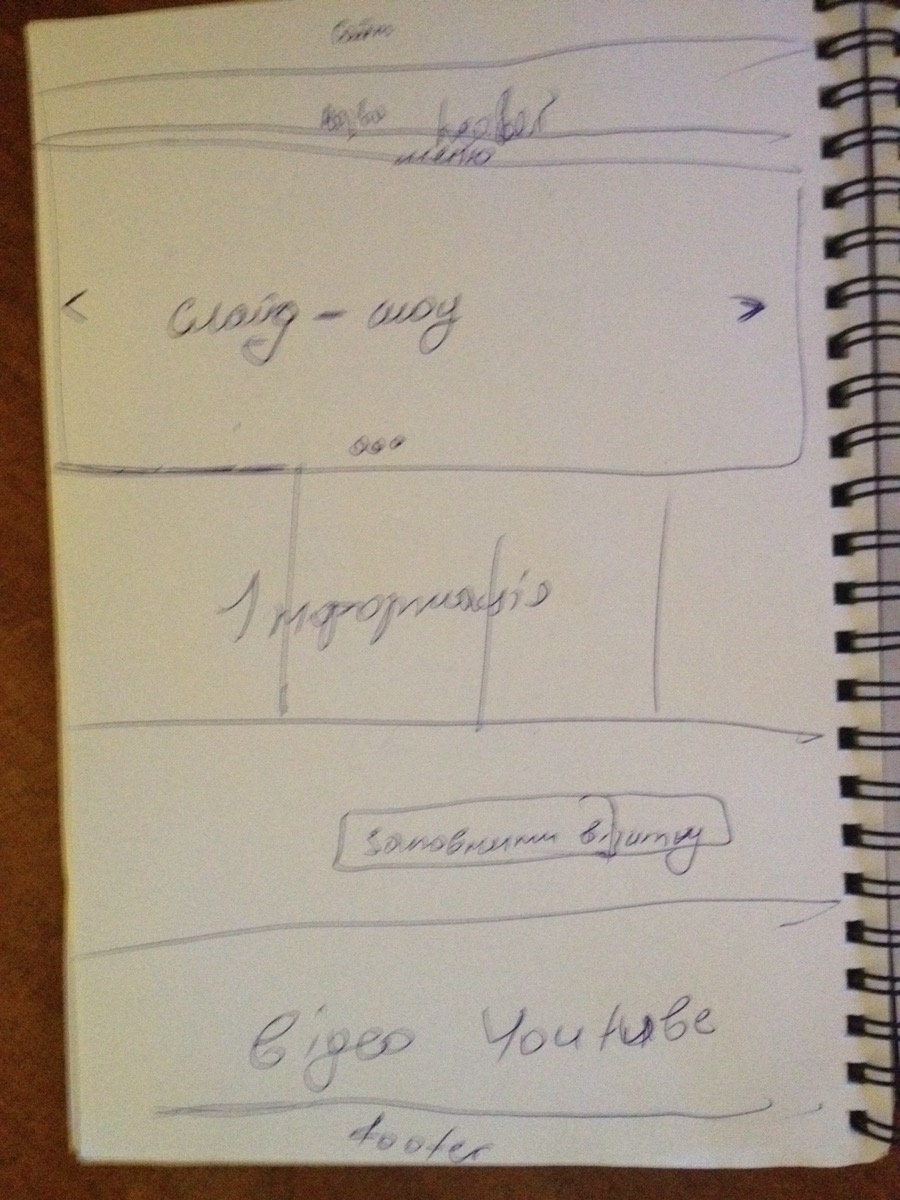 header
меню
< слайд - шоу >
Інформація
Заповнити візитку
Відео Youtube
footer